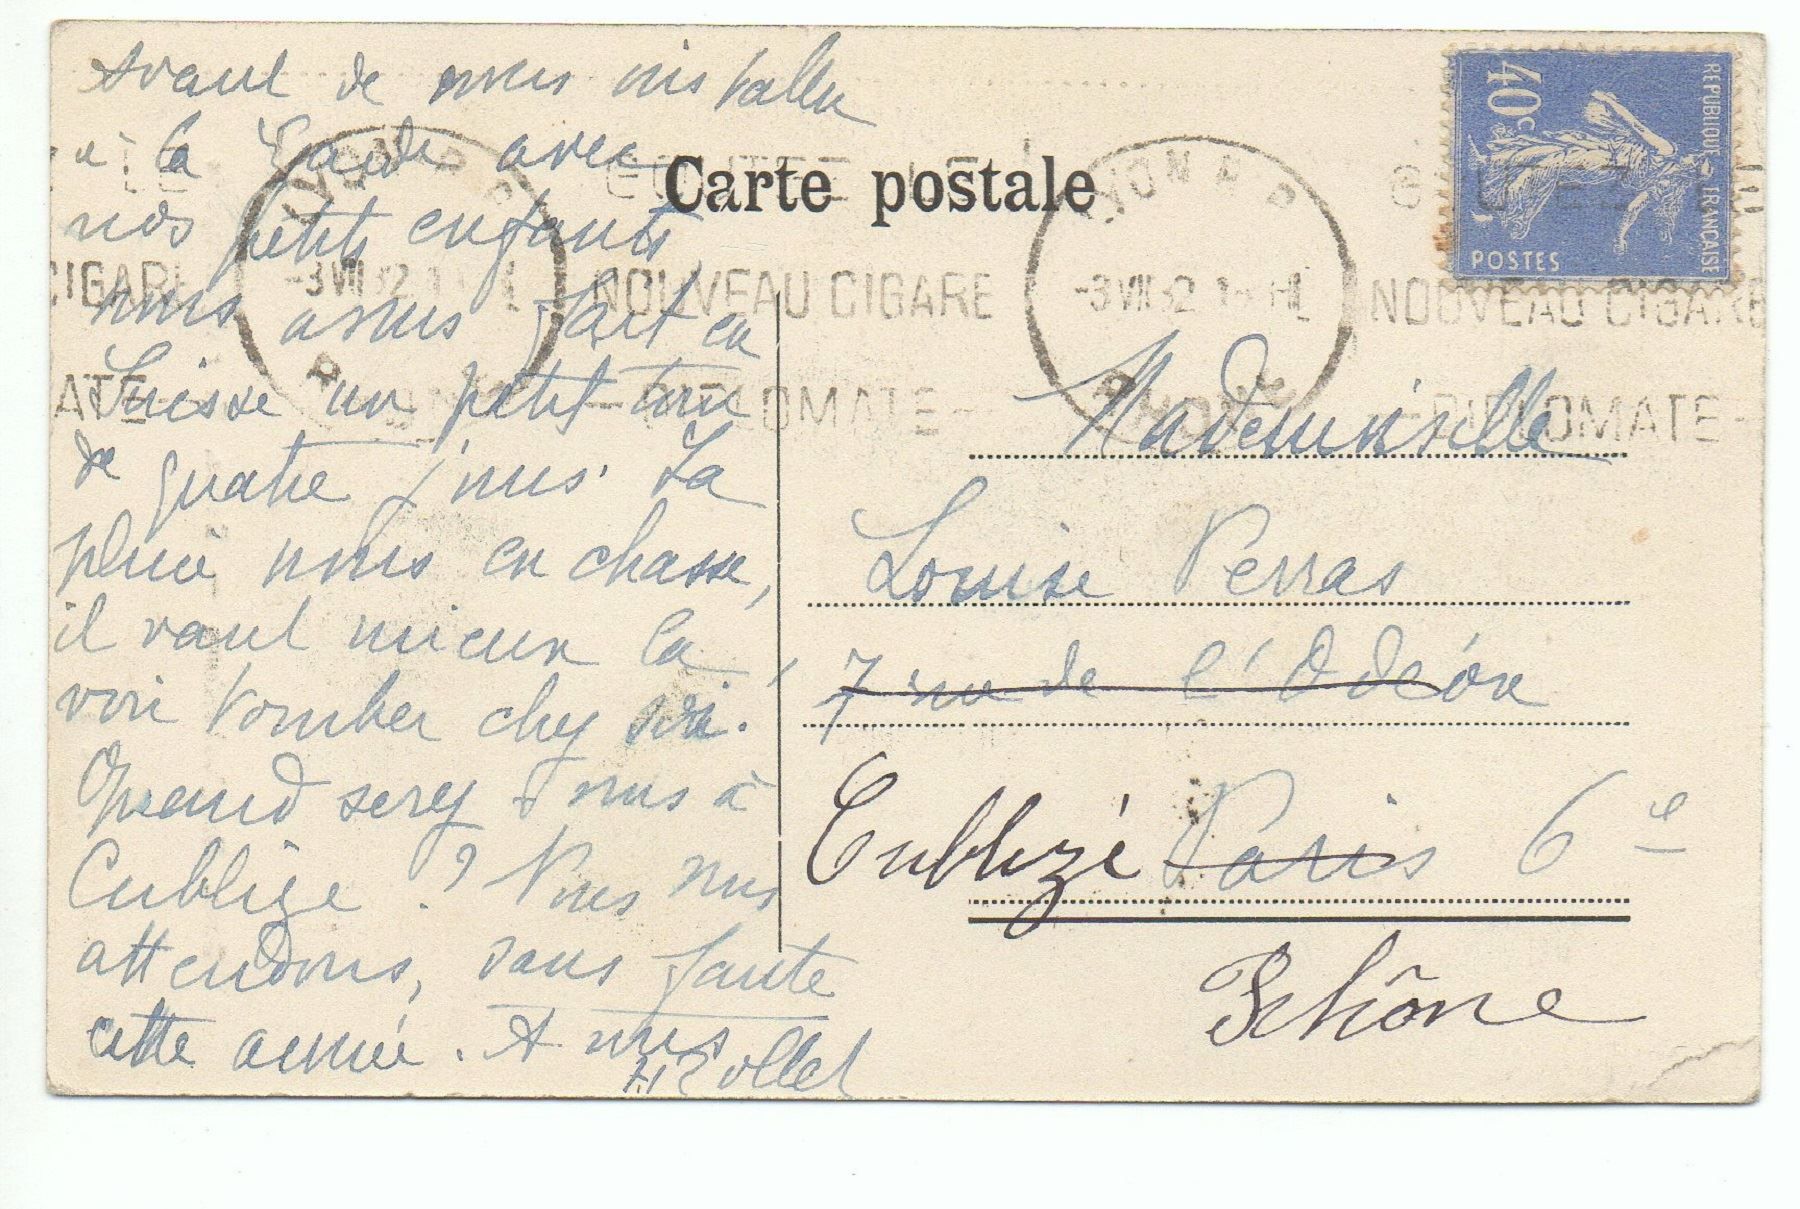 Avant de nous installer
à la Garde avec
nos petits enfants
nous avons fait en
Suisse un petit tour
de quatre jours. La
pluie nous en chasse,
il vaut mieux la
voir tomber chez soi.
Quand serez vous à
Cublize ? Nous vous
attendons, sans faute
cette année. A vous
Carte postale
LYON R P
-3 VII 32
RHONE
GOUTEZ LE
NOUVEAU CIGARE
-DIPLOMATE-
LYON R P
-3 VII 32
RHONE
GOUTEZ LE
NOUVEAU CIGARE
-DIPLOMATE-
LE
CIGARE
ATE-
40c
REPUBLIQUE FRANÇAISE
POSTES
Mademoiselle
Louise Perras
7 rue de l'Odéon
Cublizé Paris 6e
Rhône